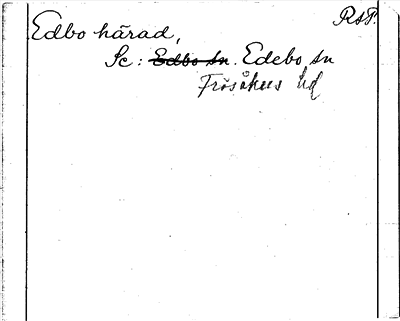 RSF.
Edbo härad,
Sc: Edbo sn. Edebo sn
Frösåkers hd